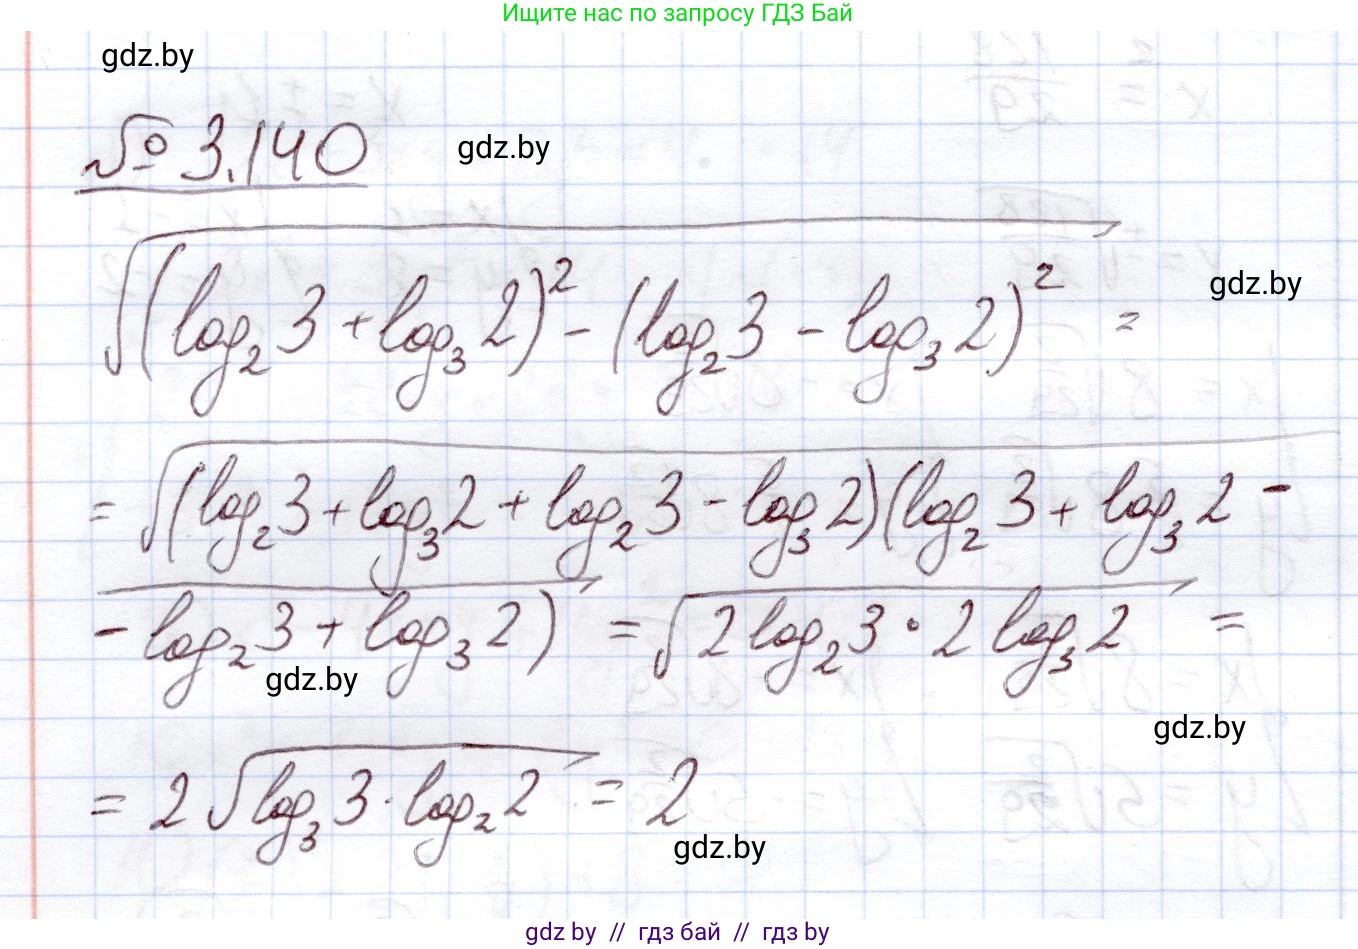 Ищите нас по запросу ГДЗ Бай
gdz.by
№ 3.140
gdz.by
gdz.by
√((log₂3 + log₃2)² - (log₂3 - log₃2)²) =
gdz.by
= √((log₂3 + log₃2 + log₂3 - log₃2)(log₂3 + log₃2 -
- log₂3 + log₃2) = √(2log₂3 · 2log₃2) =
gdz.by
gdz.by
= 2√(log₃3 · log₂2) = 2
gdz.by
gdz by // гдз бай // гдз by